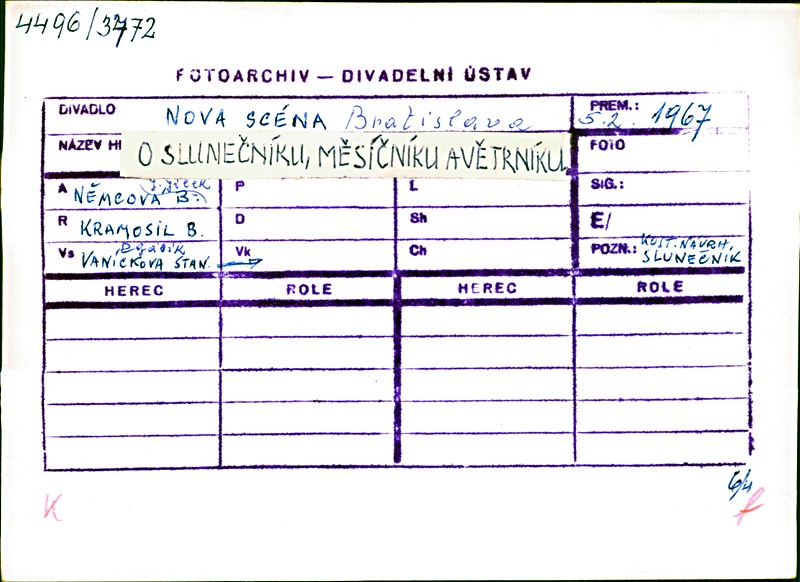 4496/3772
FOTOARCHIV — DIVADELNÍ ÚSTAV
DIVADLO NOVA SCÉNA Bratislava PREM.: 5.2. 1967
NÁZEV O SLUNEČNÍKU, MĚSÍČNÍKU A VĚTRNÍKU FOTO
A NĚMCOVÁ B. P L SIG.:
R KRAMOSIL B. D Sh E/
Vs VANIČKOVA STAN. Vk Ch POZN.: KOST. NÁVRH, SLUNEČNÍK
HEREC ROLE HEREC ROLE
K